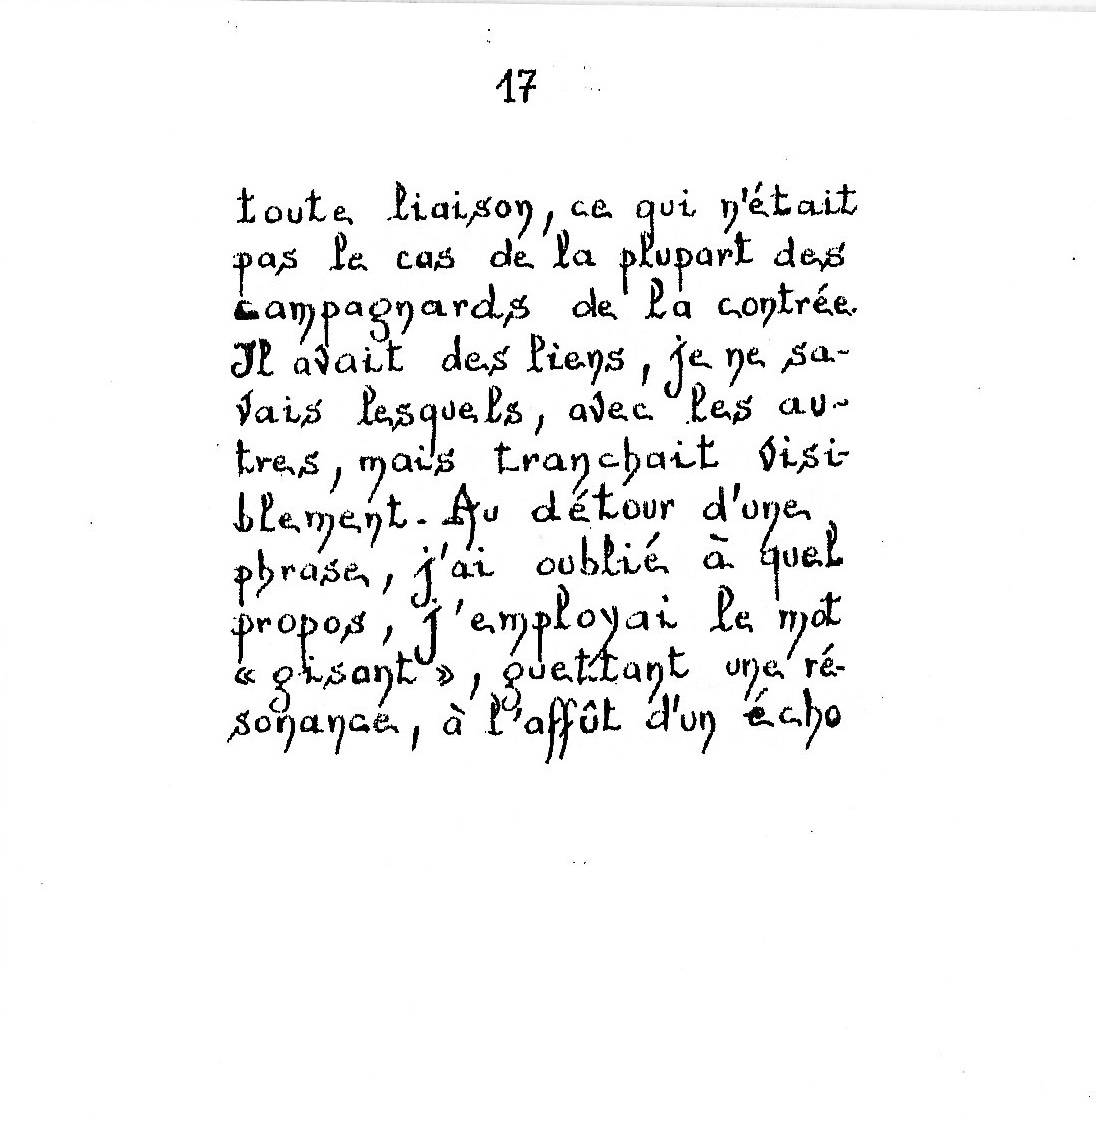 17
toute liaison, ce qui n'était
pas le cas de la plupart des
campagnards de la contrée.
Il avait des liens, je ne sa-
vais lesquels, avec les au-
tres, mais tranchait visi-
blement. Au détour d'une
phrase, j'ai oublié à quel
propos, j'employai le mot
« gisant », guettant une ré-
sonance, à l'affût d'un écho